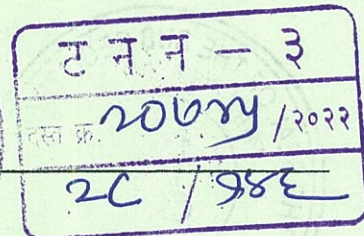 ट न न - ३
दस्त क्र. २०७४५ /२०२२
२८ / १४६